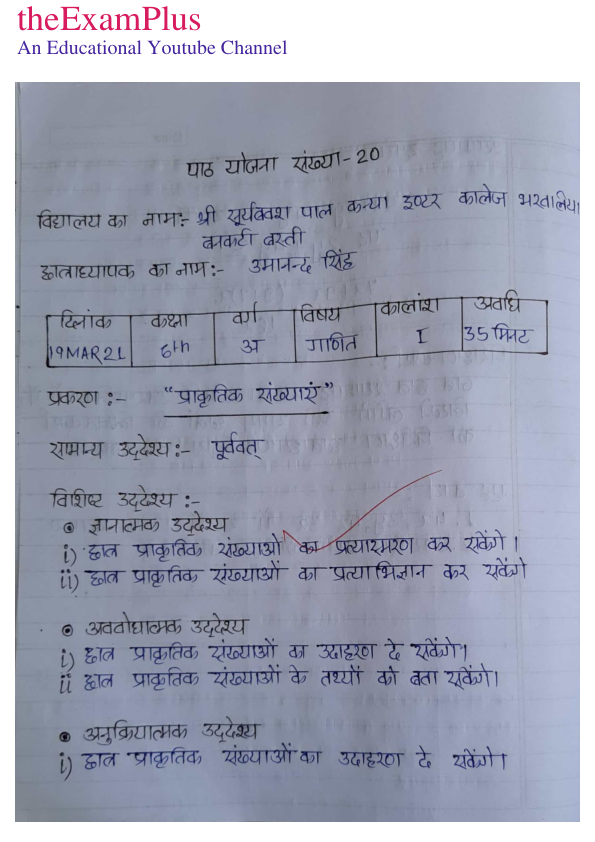 theExamPlus
An Educational Youtube Channel
पाठ योजना संख्या-20
विद्यालय का नाम:- श्री सूर्यबक्श पाल कन्या इण्टर कालेज भरतालिया
बनकटी बस्ती
छात्राध्यापक का नाम:- उमानन्द सिंह
दिनांक कक्षा वर्ग विषय कालांश अवधि
19MAR21 6th अ गणित I 35 मिनट
प्रकरण :- "प्राकृतिक संख्याएं"
सामान्य उद्देश्य:- पूर्ववत्
विशिष्ट उद्देश्य :-
• ज्ञानात्मक उद्देश्य
i) छात्र प्राकृतिक संख्याओं का प्रत्यास्मरण कर सकेंगे।
ii) छात्र प्राकृतिक संख्याओं का प्रत्याभिज्ञान कर सकेंगे
• अवबोधात्मक उद्देश्य
i) छात्र प्राकृतिक संख्याओं का उदाहरण दे सकेंगे।
ii छात्र प्राकृतिक संख्याओं के तथ्यों को बता सकेंगे।
• अनुक्रियात्मक उद्देश्य
i) छात्र प्राकृतिक संख्याओं का उदाहरण दे सकेंगे।